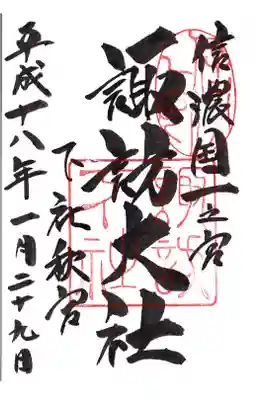 信濃國一之宮
諏訪大社
下社秋宮
平成十八年一月二十九日